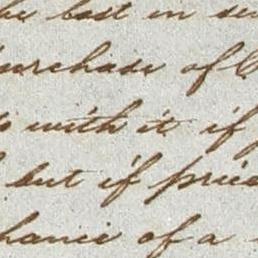 the best in
purchase of
with it if
but if price
chance of a